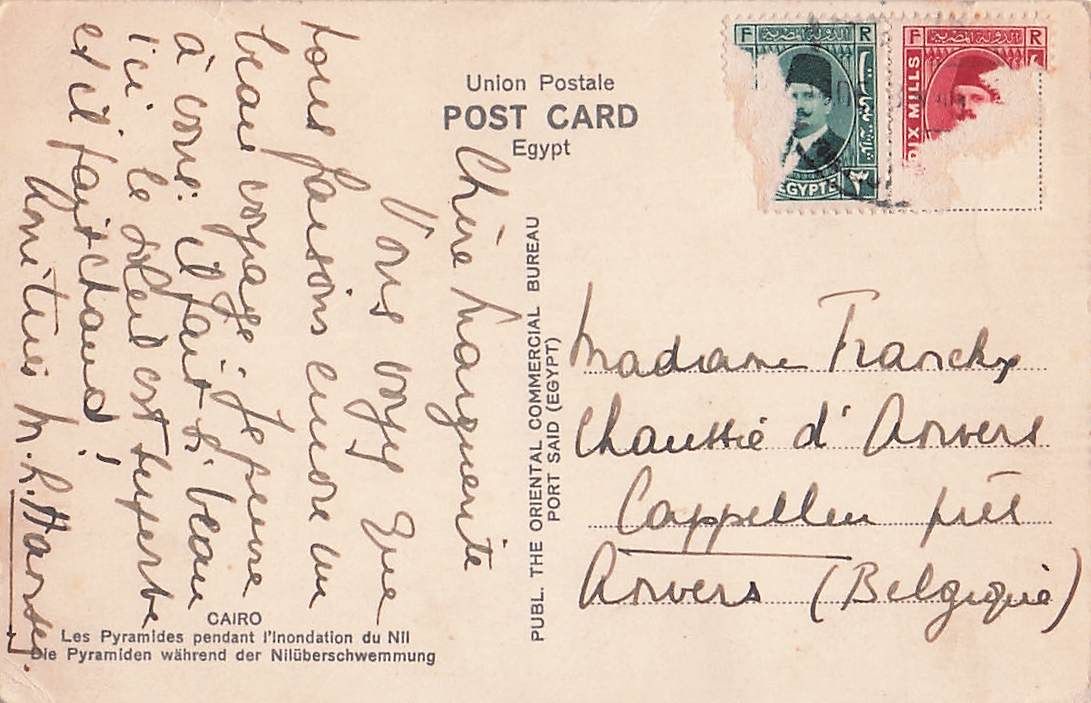 Union Postale
POST CARD
Egypt
F R
EGYPTE ٣
F R
DIX MILLS
Chère Marguerite
Vous voyez que
nous faisons encore un
beau voyage. Je pense
à vous: il fait si beau
ici le soleil est superbe
et il fait chaud!
Amitiés M. L.
PUBL. THE ORIENTAL COMMERCIAL BUREAU
PORT SAID (EGYPT)
Madame Franckx
Chaussée d'Anvers
Cappellen près
Anvers (Belgique)
CAIRO
Les Pyramides pendant l'Inondation du Nil
Die Pyramiden während der Nilüberschwemmung